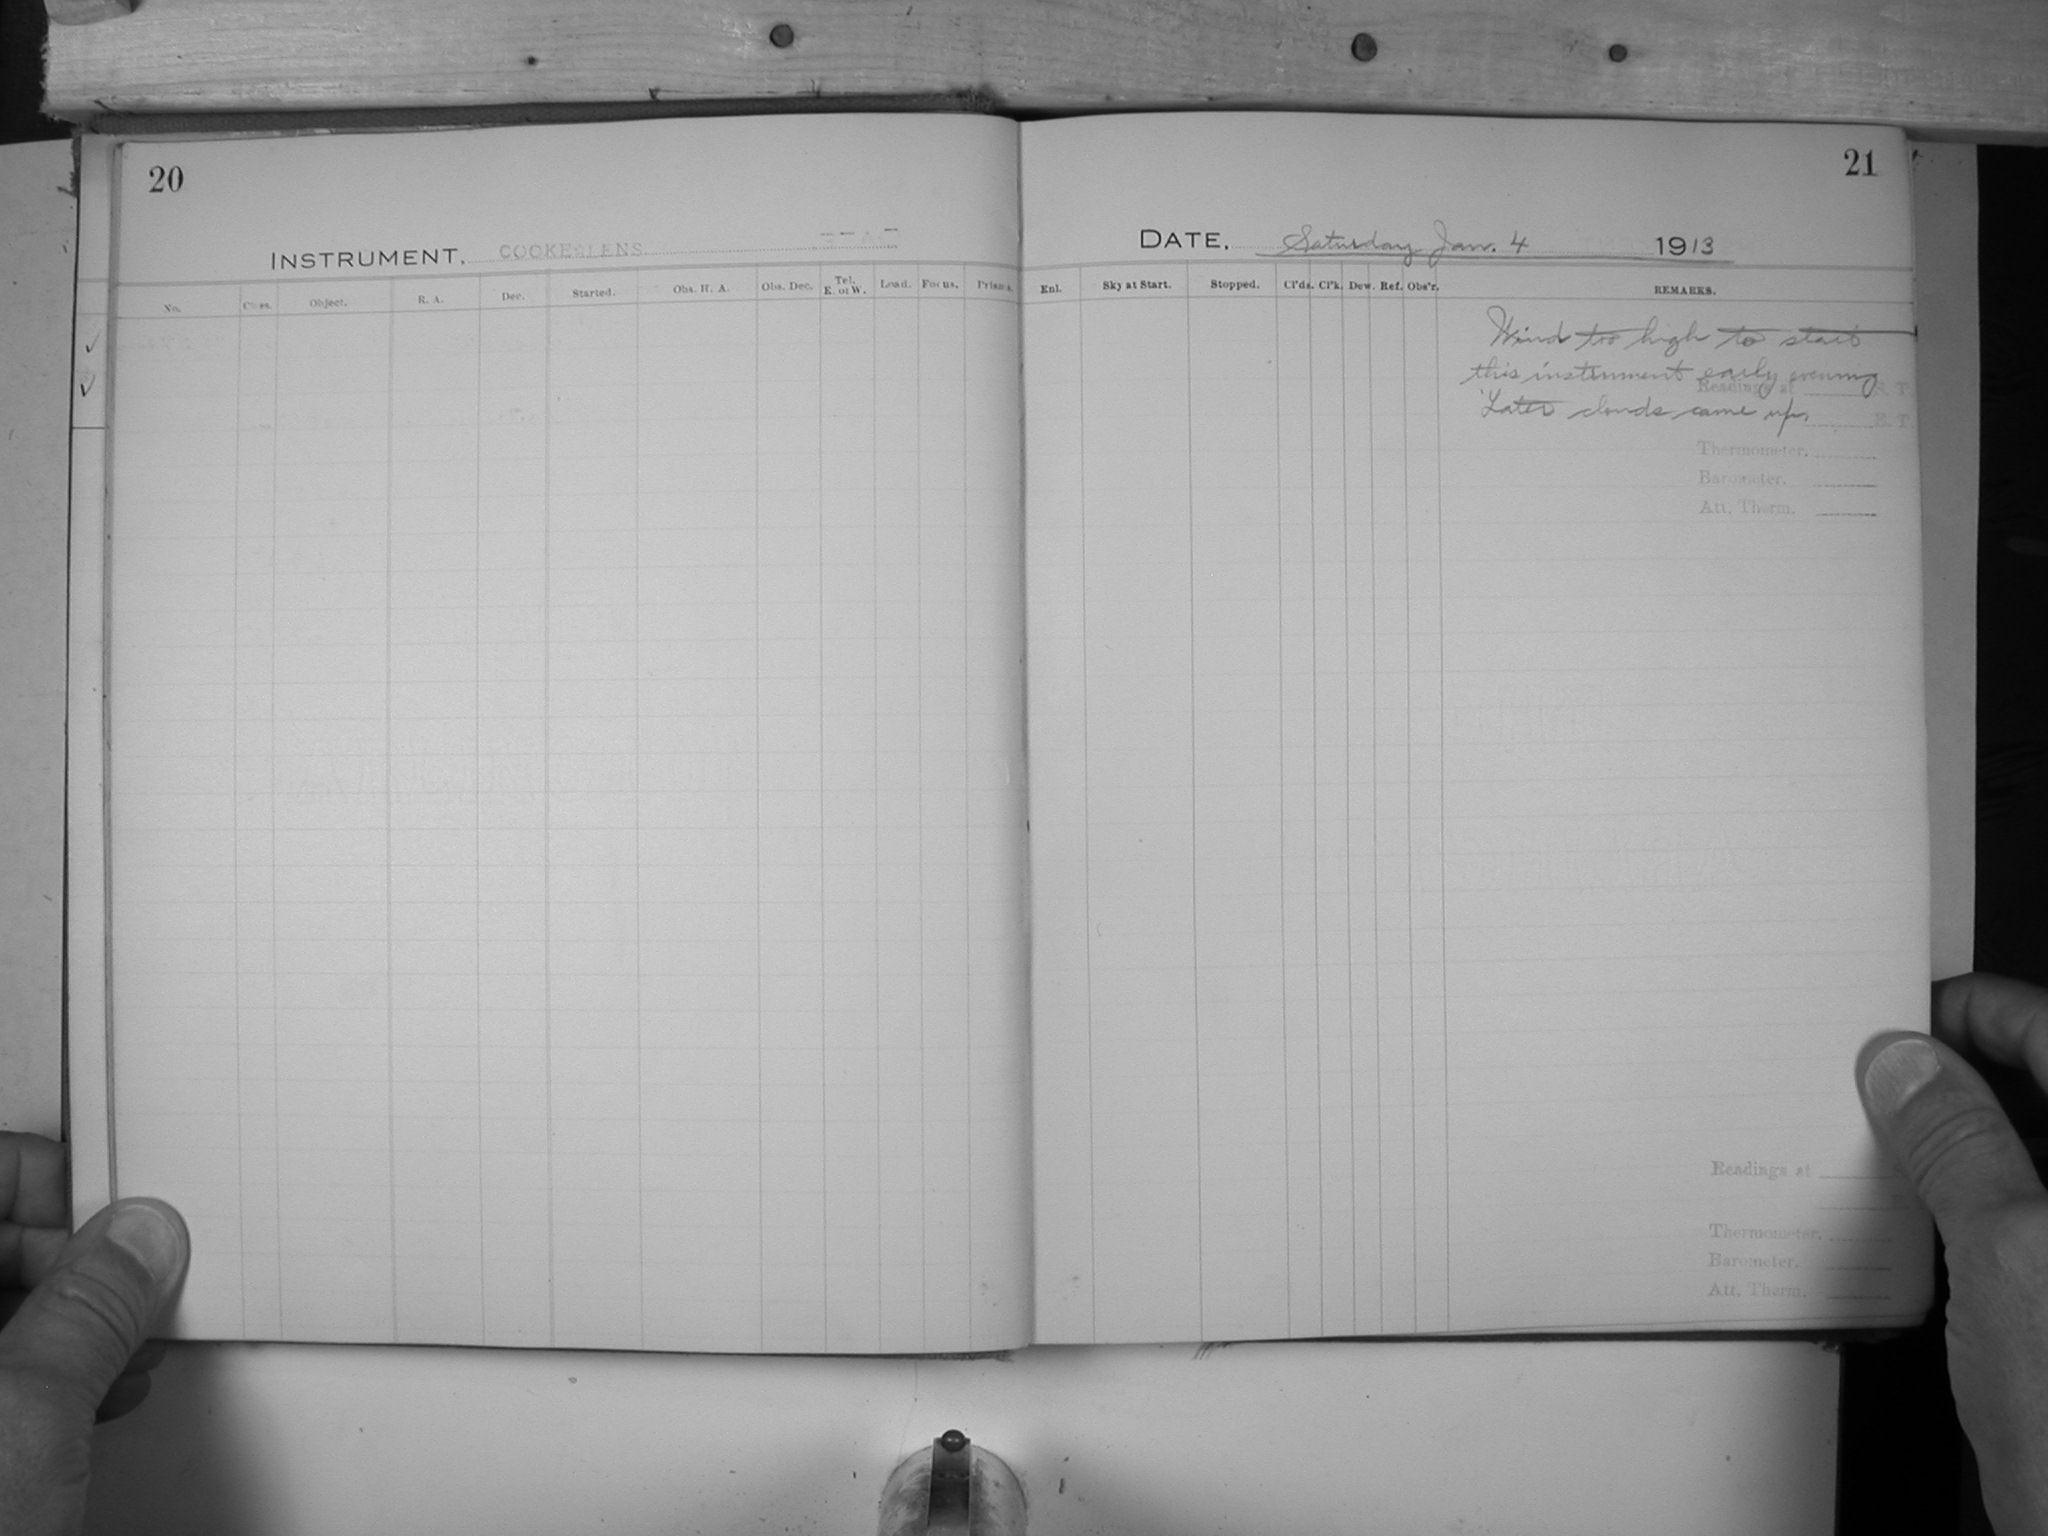 20
INSTRUMENT, COOKE LENS
No. Class. Object. R. A. Dec. Started. Obs. H. A. Obs. Dec. Tel. E. or W. Load. Focus. Prisms.
21
DATE, Saturday Jan. 4 1913
Enl. Sky at Start. Stopped. Cl'ds. Cl'k. Dew. Ref. Obs'r. REMARKS.
Wind too high to start
this instrument early evening
Later clouds came up.
Readings at S. T.
E. T.
Thermometer.
Barometer.
Att. Therm.
Readings at
Thermometer.
Barometer.
Att. Therm.